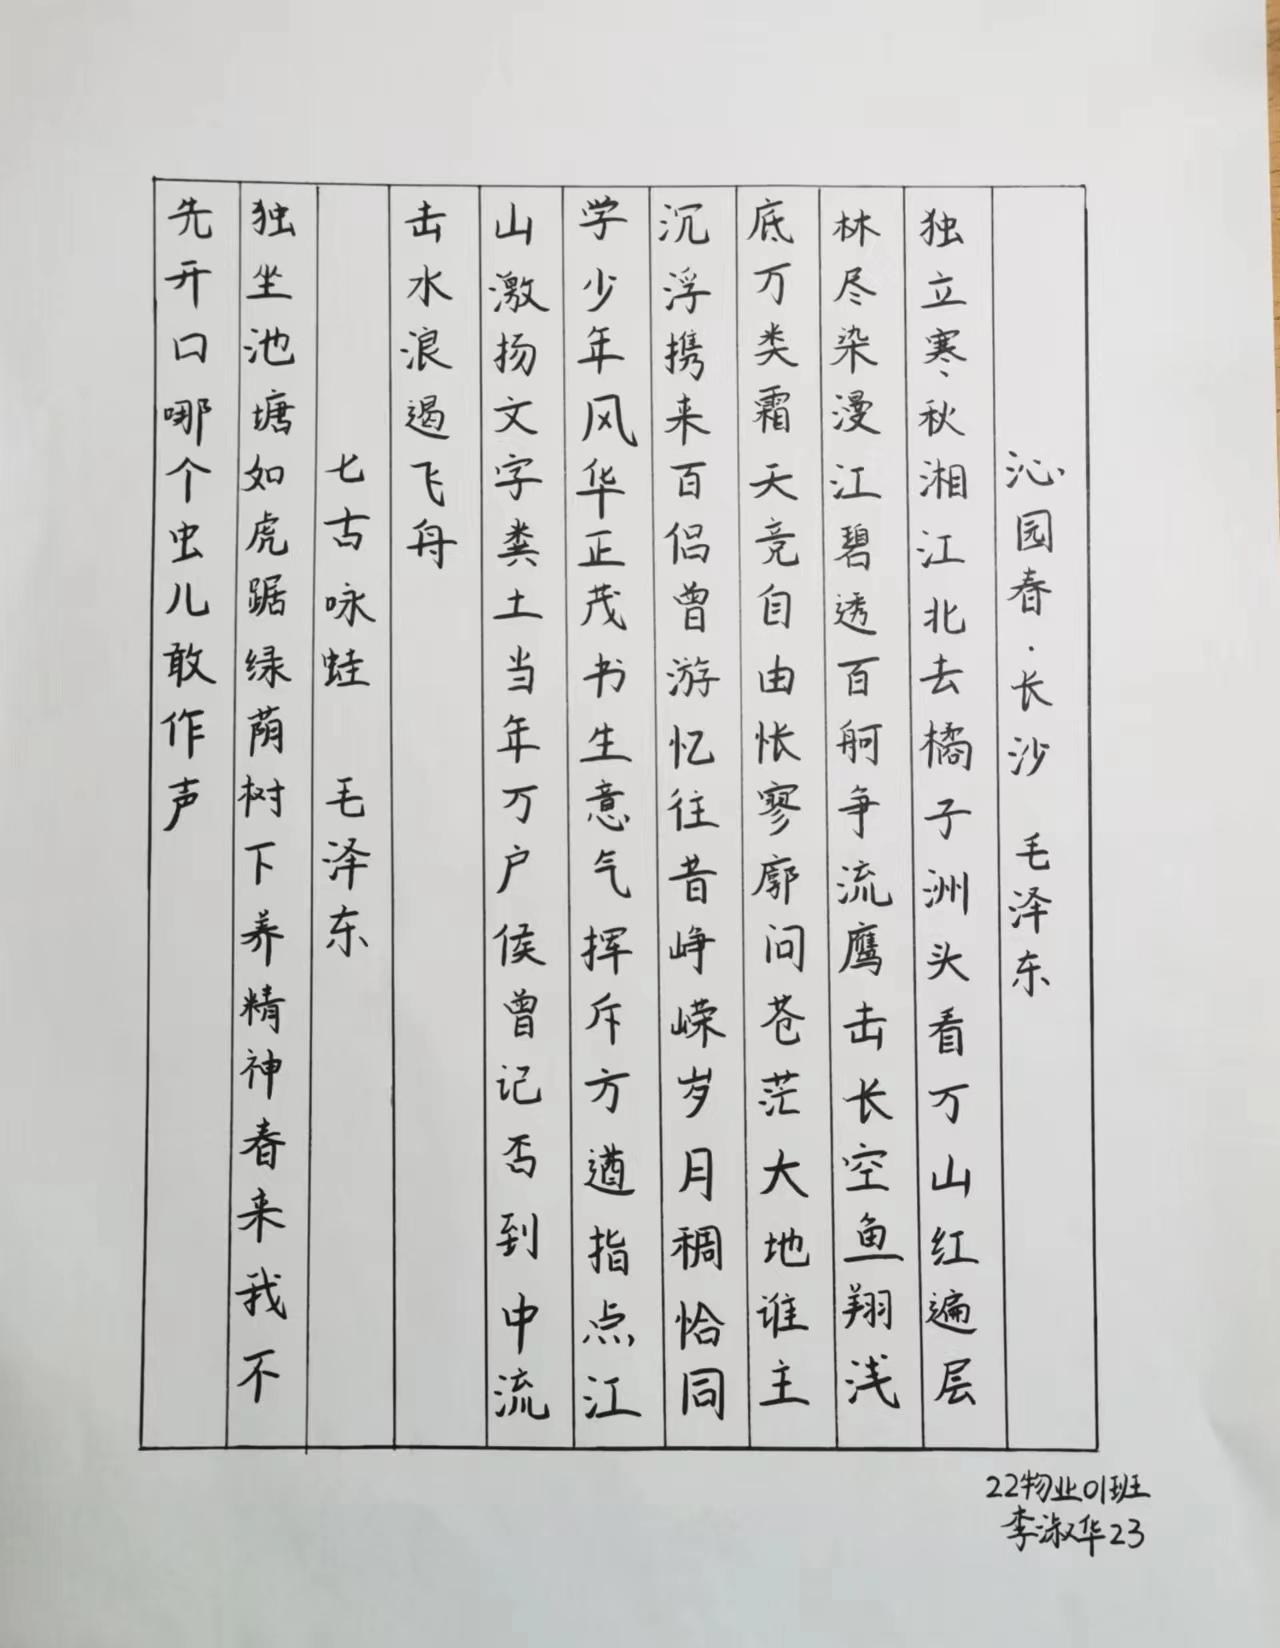 沁园春·长沙 毛泽东
独立寒秋湘江北去橘子洲头看万山红遍层
林尽染漫江碧透百舸争流鹰击长空鱼翔浅
底万类霜天竞自由怅寥廓问苍茫大地谁主
沉浮携来百侣曾游忆往昔峥嵘岁月稠恰同
学少年风华正茂书生意气挥斥方遒指点江
山激扬文字粪土当年万户侯曾记否到中流
击水浪遏飞舟
七古咏蛙 毛泽东
独坐池塘如虎踞绿荫树下养精神春来我不
先开口哪个虫儿敢作声
22物业01班
李淑华23